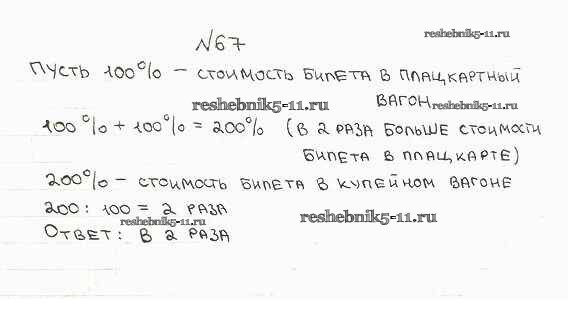 №67
reshebnik5-11.ru
Пусть 100% – стоимость билета в плацкартный
вагон
reshebnik5-11.ru
reshebnik5-11.ru
100% + 100% = 200% (в 2 раза больше стоимости
билета в плацкарте)
200% – стоимость билета в купейном вагоне
200 : 100 = 2 раза
reshebnik5-11.ru
reshebnik5-11.ru
Ответ: в 2 раза